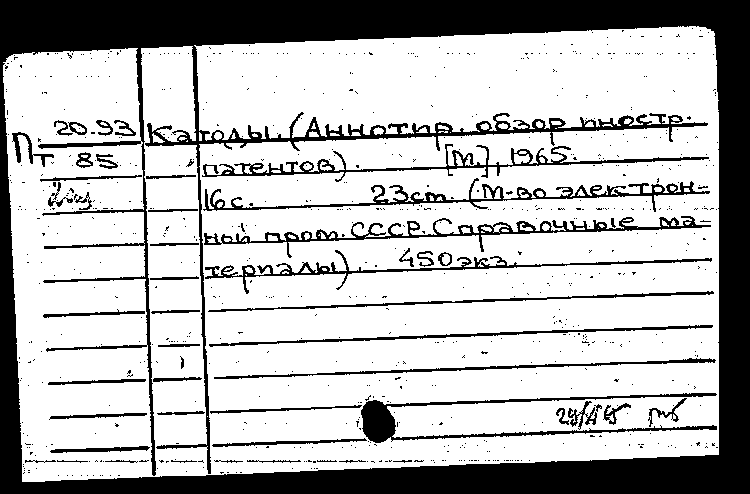 П 20.93 Катоды. (Аннотир. обзор иностр.
т 85 патентов). [М.], 1965.
2 экз 16 с. 23 ст. (М-во электрон-
ной пром. СССР. Справочные ма-
териалы). 450 экз.